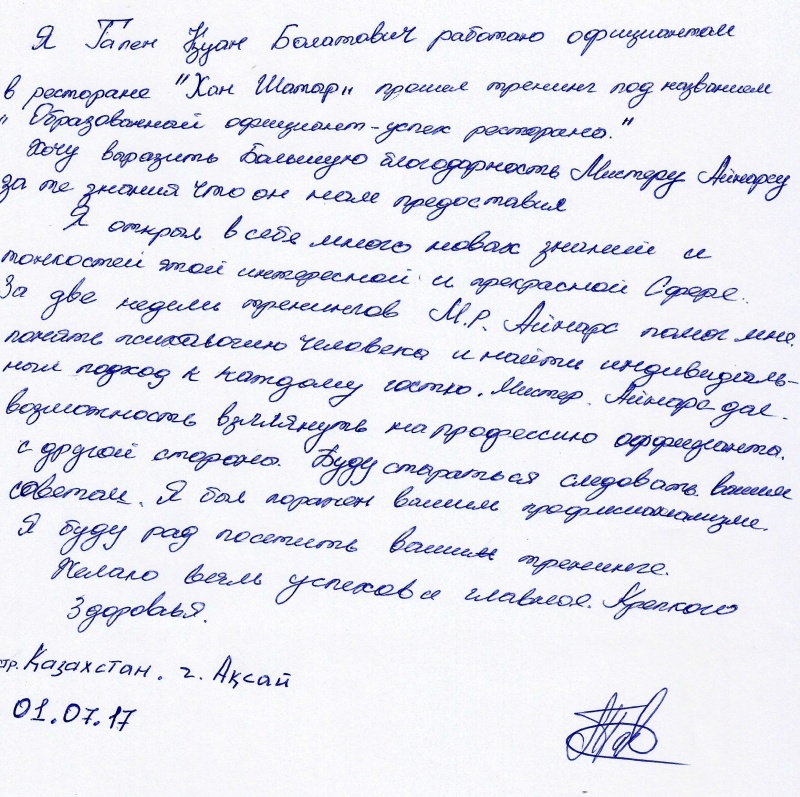 Я Гален Қуан Болатович работаю официантом
в ресторане "Хан Шатыр" прошел тренинг под названием
"Образованный официант-успех ресторана."
Хочу выразить Большую благодарность Мистеру Айнарсу
за те знания что он нам предоставил
Я открыл в себе много новых знаний и
тонкостей этой интересной и прекрасной Сфере.
За две недели тренингов М.Р. Айнарс помог мне.
понять психологию человека и найти индивидуаль-
ный подход к каждому гостю. Мистер. Айнарс дал.
возможность взглянуть на профессию оффицианта.
с другой стороны. Буду стараться следовать вашим
советам. Я был поражен вашим профисионализме.
Я буду рад посетить вашим тренинге.
Желаю всем успехов и главное. Крепкого
Здоровья.
Казахстан. г. Ақсай
01.07.17